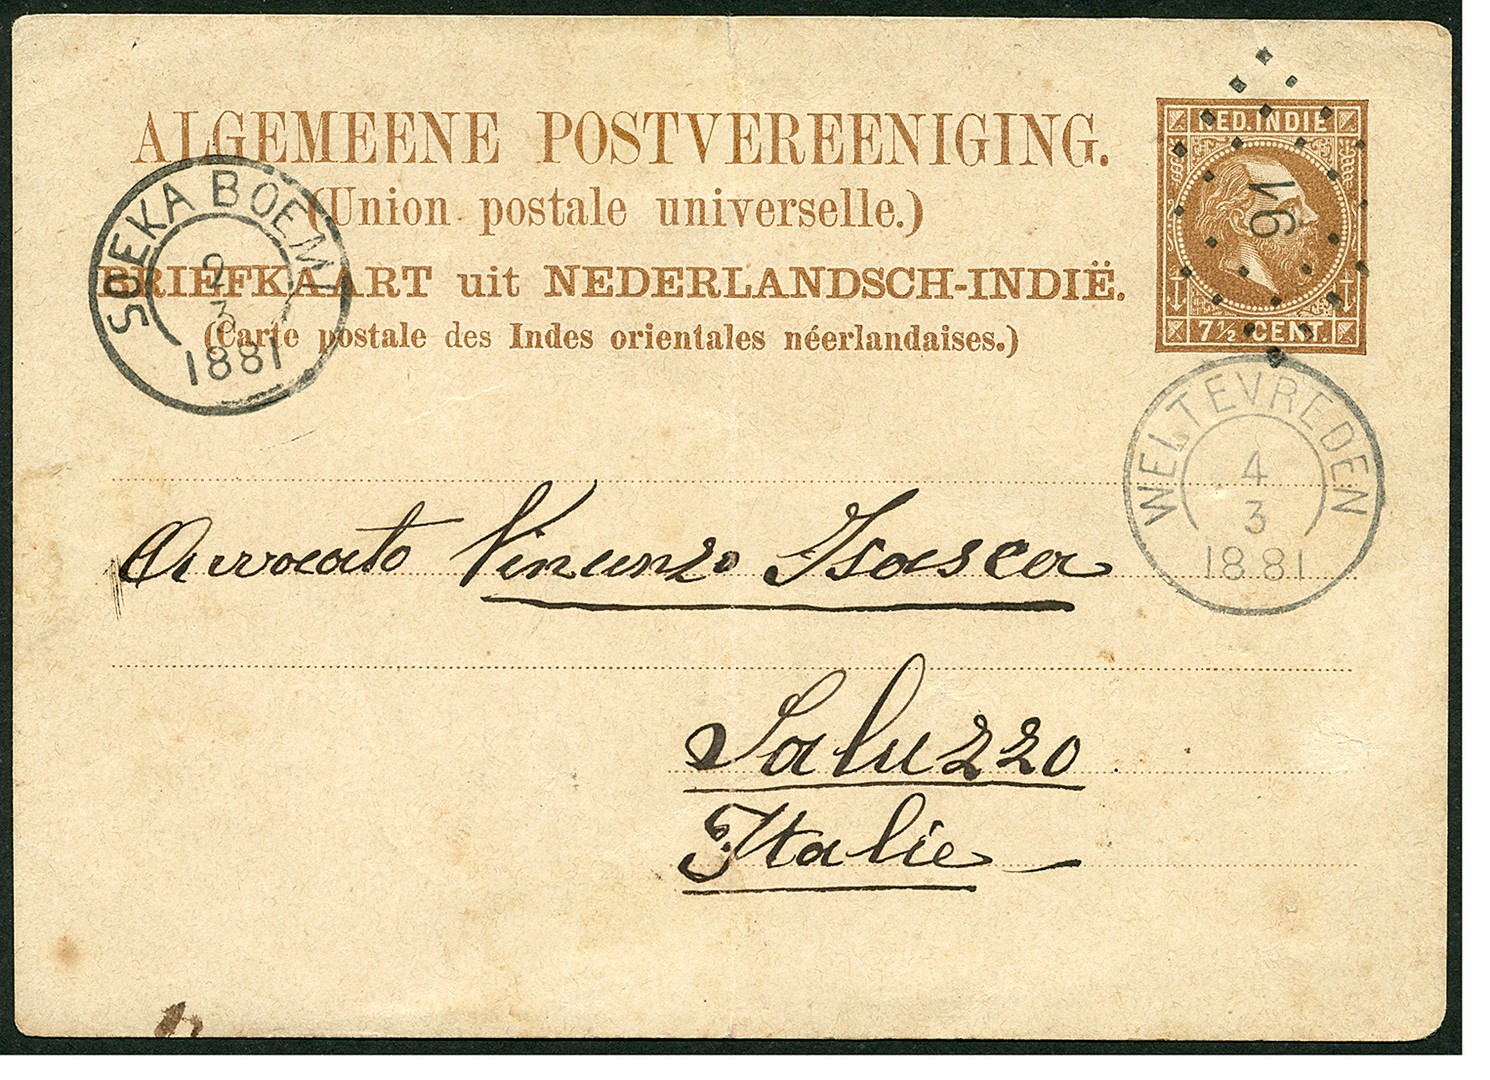 ALGEMEENE POSTVEREENIGING.
(Union postale universelle.)
BRIEFKAART uit NEDERLANDSCH-INDIË.
(Carte postale des Indes orientales néerlandaises.)
NED.INDIE
91
7½ CENT.
SOEKA BOEMI
2
3
1881
WELTEVREDEN
4
3
1881
Avvocato Vincenzo Isasca
Saluzzo
Italie